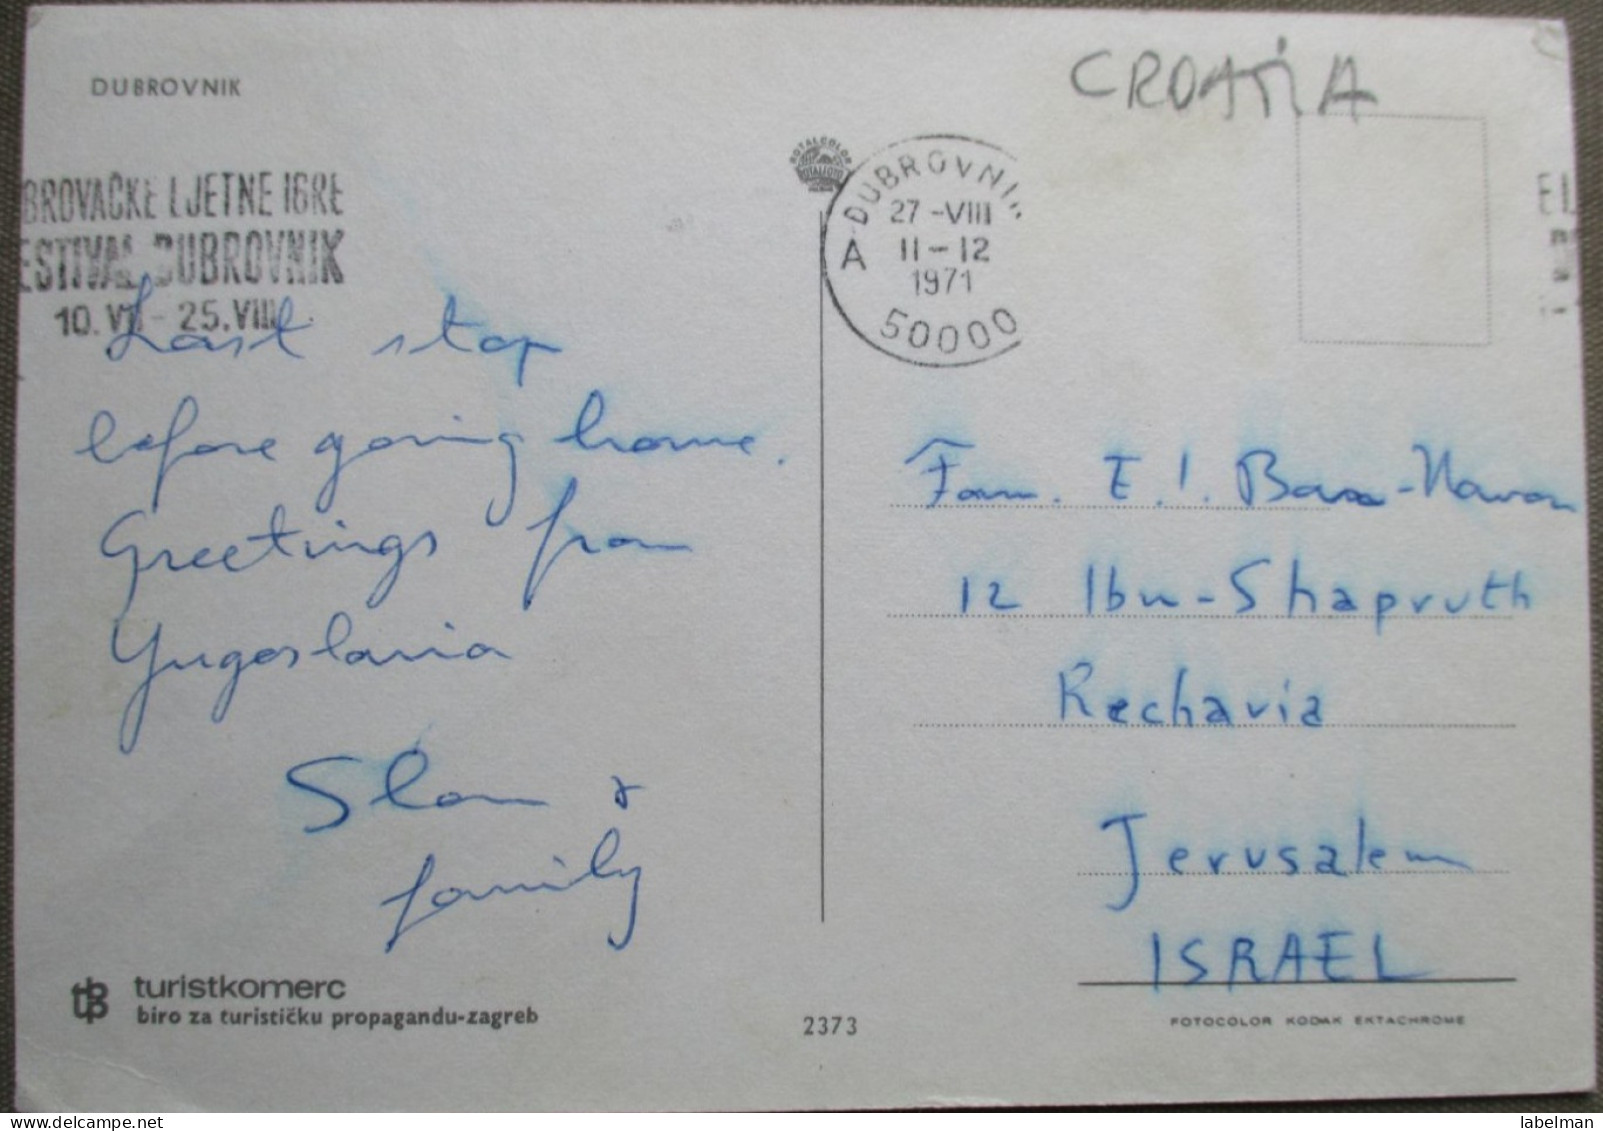 DUBROVNIK
CROATIA
BROVAČKE LJETNE IGRE
ESTIVAL DUBROVNIK
10. VII - 25. VIII.
ROTALCOLOR
DUBROVNIK
27 -VIII
11-12
1971
A
50000
Last stop
before going home.
Greetings from
Yugoslavia
&
family
Fam. E.
12 Ibn-Shapruth
Rechavia
Jerusalem
ISRAEL
turistkomerc
biro za turističku propagandu-zagreb
2373
FOTOCOLOR KODAK EKTACHROME
labelman delcampe.net